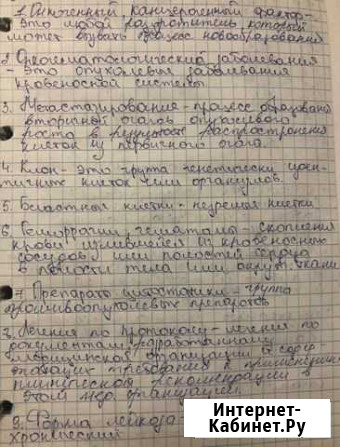 1. канцерогенный фактор -
это любой раздражитель, который
может вызвать процесс новообразования
2. Онкогематологические заболевания
- это опухолевые заболевания
кровеносной системы
3. Метастазирование - процесс образования
вторичного очагов опухолевого
роста в результате распространения
клеток из первичного очага.
4. Клон - это группа генетически иден-
тичных клеток или организмов.
5. Бластные клетки - незрелые клетки
6. Геморрагии, гематомы - скопления
крови излившейся из кровеносных
сосудов или полостей сердца
в полости тела или окруж. ткани
7. Препараты цитостатики - группа
противоопухолевых препаратов
8. Лечения по протоколу - лечения по
документам разработанному
медицинской организации в
требования к применению
клинической рекомендации в
этом мед. организации.
9. Форма лейкоза -
хронический
Интернет-
Кабинет.Ру